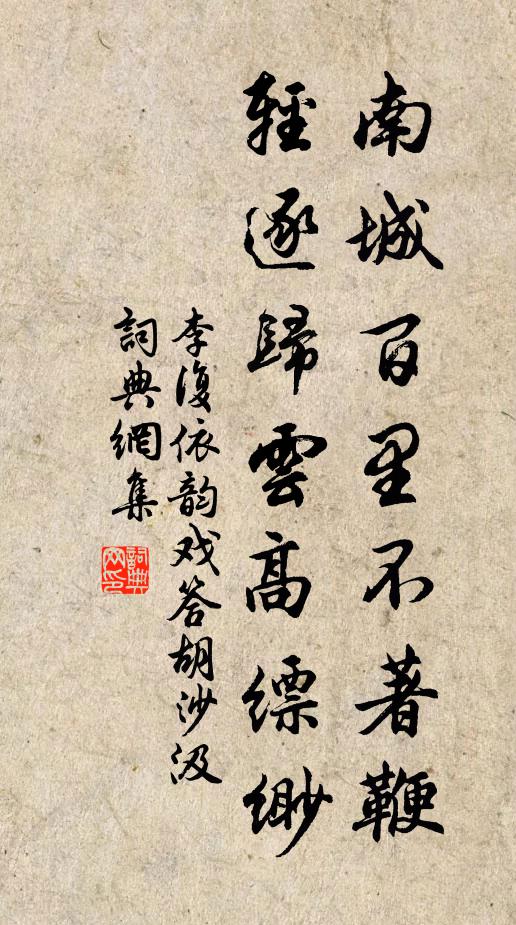 南城百里不著鞭
輕逐歸雲高縹緲
李復依韵戏答胡沙汲
詞典網集
詞典網印